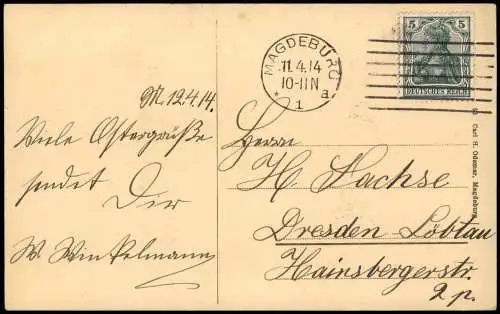 M. 12.4.14.
Viele Ostergrüße
sendet Dir
W. Winkelmann
MAGDEBURG
11.4.14
10-11 N
* 1 a
5 5
DEUTSCHES REICH
Herrn
H. Sachse
Dresden-Löbtau
Hainsbergerstr.
2 p.
Carl H. Odemar, Magdeburg